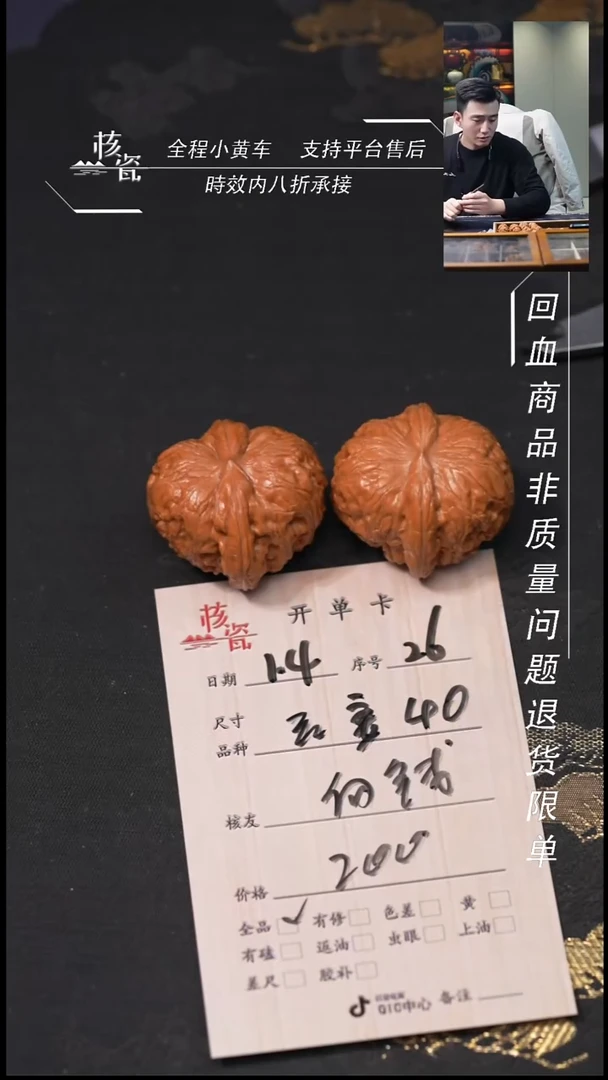 核瓷
全程小黄车 支持平台售后
時效内八折承接
回血商品非质量问题退货限单
核瓷
开单卡
日期 1.4 序号 26
尺寸
品种 40
核友
价格 200
全品 有修 色差 黄
有磕 返油 虫眼 上油
差尺 胶补
QIC中心 备注